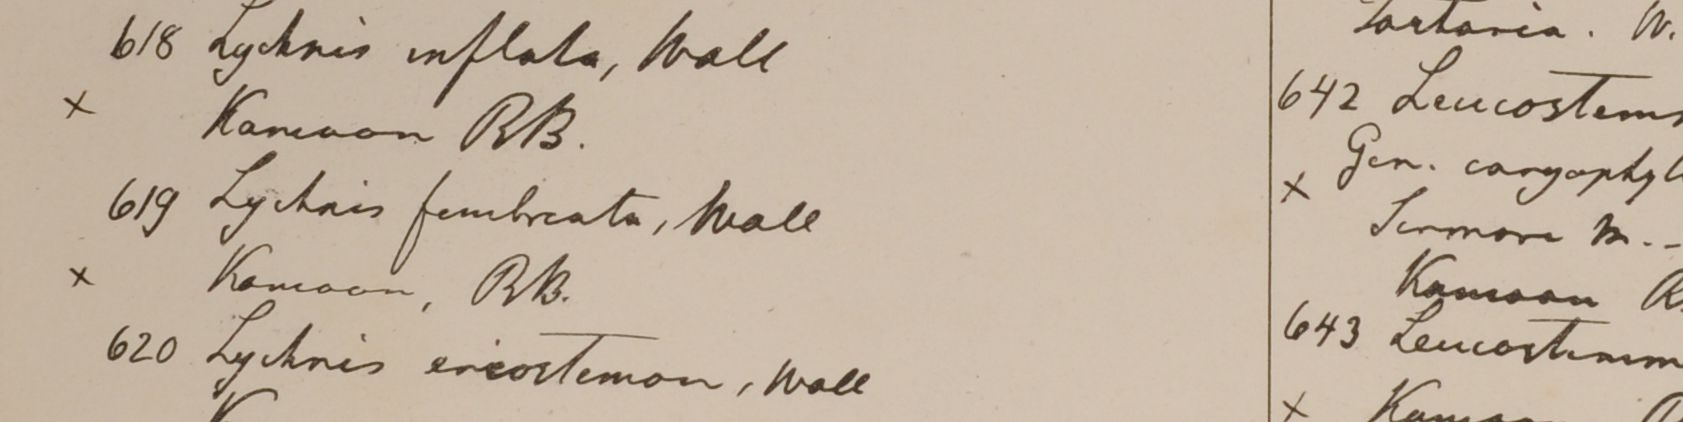 618 Lychnis inflata, Wall
x
Kamaon RB.
619 Lychnis fimbreata, Wall
x
Kamaon, RB.
620 Lychnis ericostemon, Wall
Tartaria. W.
642 Leucostem
Gen. caryophyl
x
Sirmore m. -
Kamaon R
643 Leucostemm
x
Kamaon